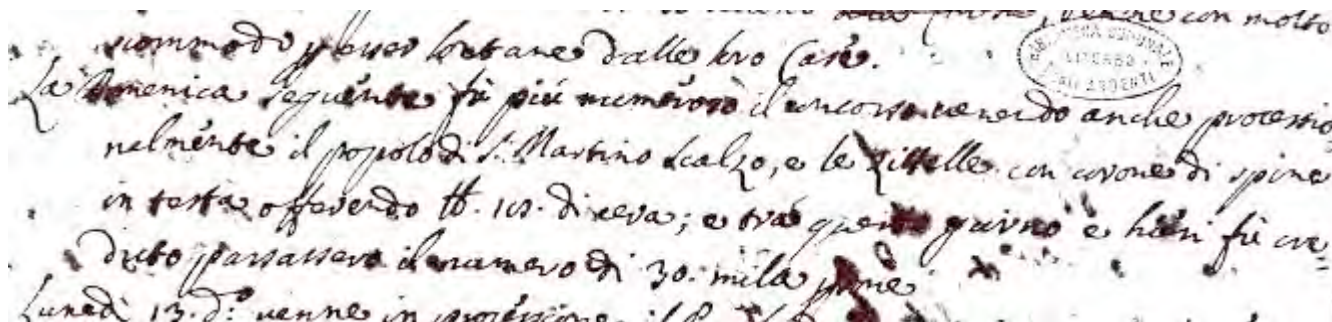 venne con molto
scommodo p esser lontane dalle loro Case.
BIBLIOTECA COMUNALE
VITERBO
DEGLI ARDENTI
La Domenica seguente fù più numeroso il concorso venendo anche processio
nalmente il popolo di S. Martino scalzo, e le Zittelle con corone di spine
in testa offerendo tt. 105. di cera; e trà questo giorno e hieri fù cre=
duto passassero il numero di 30. mila psone
Lunedì 13. d.º venne in processione il